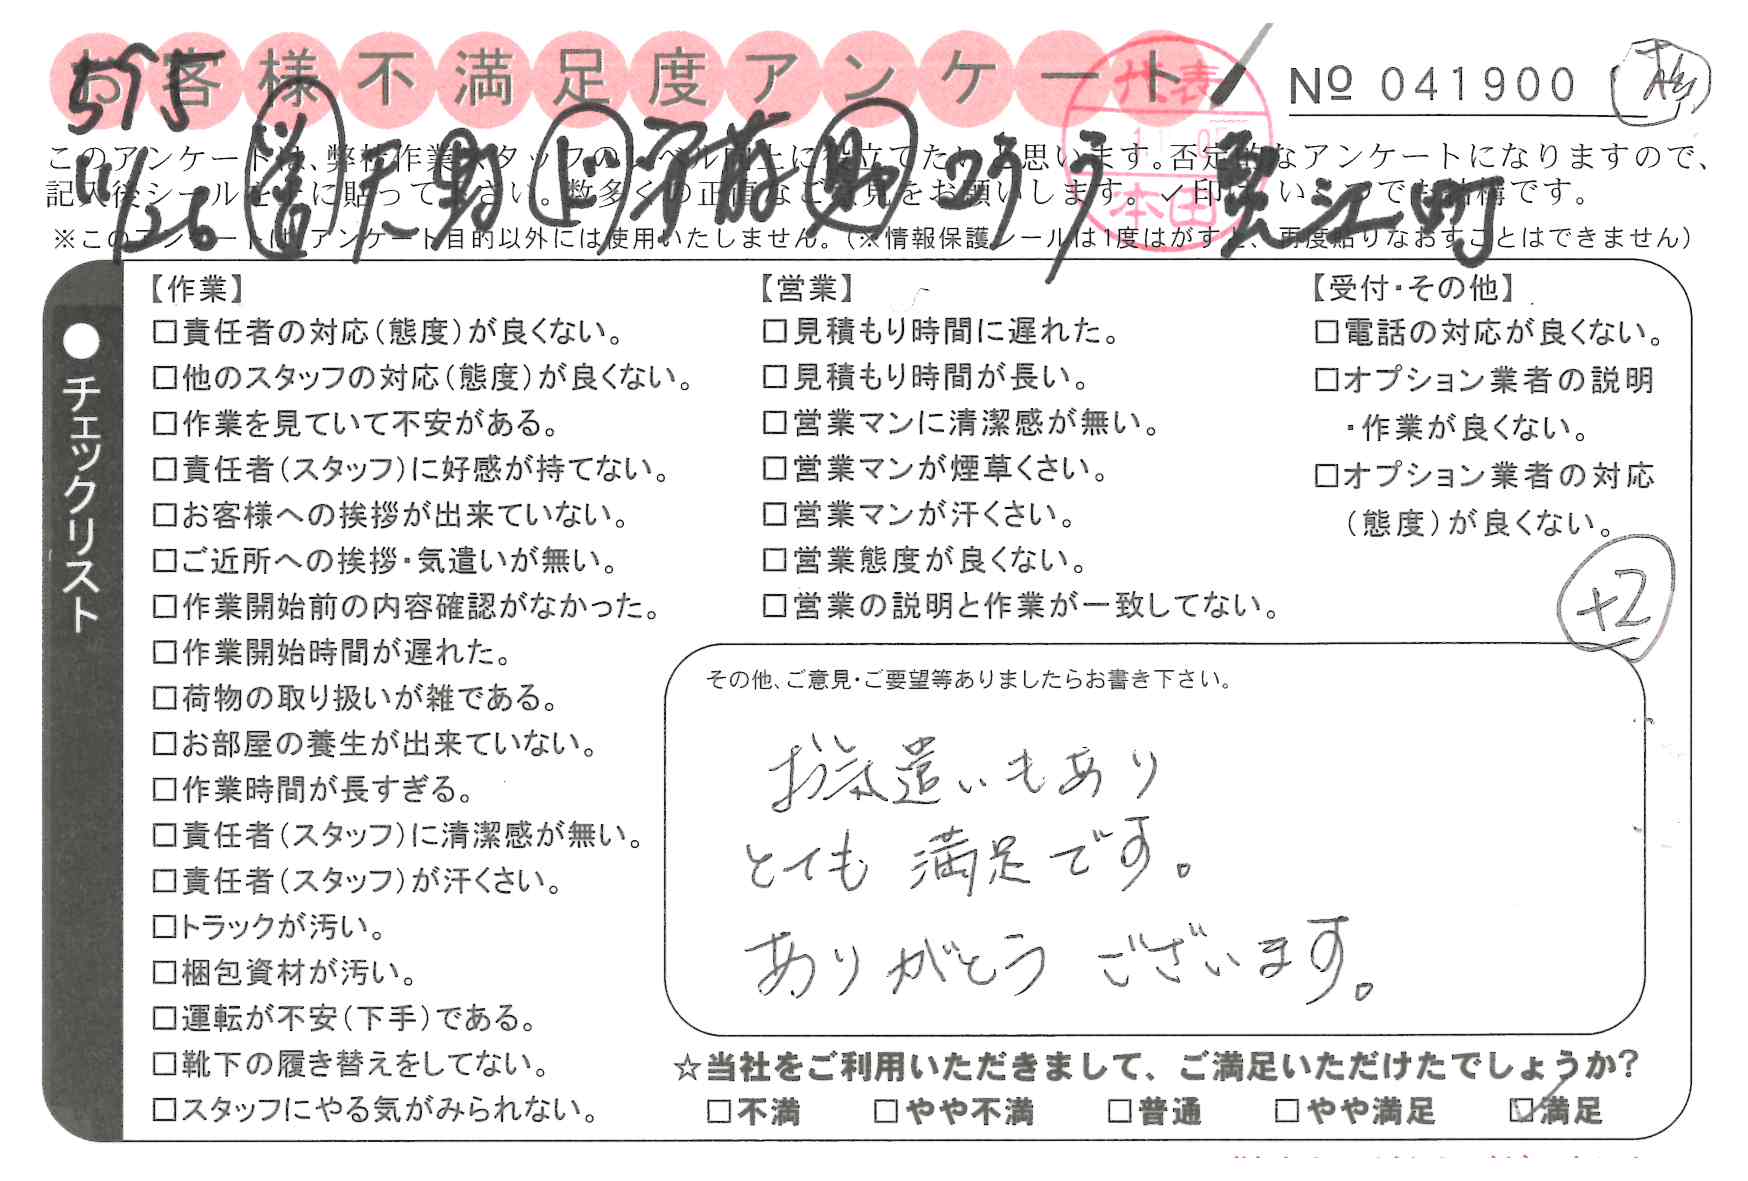 お客様不満足度アンケート
№ 041900
575
代表
本田
11/26
このアンケートは、弊社作業スタッフのレベル向上に役立てたいと思います。否定的なアンケートになりますので、
記入後シールを上に貼って下さい。数多くの正直なご意見をお願いします。✓印はいくつでも結構です。
※このアンケートは、アンケート目的以外には使用いたしません。(※情報保護シールは1度はがすと、再度貼りなおすことはできません)
●チェックリスト
【作業】
□責任者の対応(態度)が良くない。
□他のスタッフの対応(態度)が良くない。
□作業を見ていて不安がある。
□責任者(スタッフ)に好感が持てない。
□お客様への挨拶が出来ていない。
□ご近所への挨拶・気遣いが無い。
□作業開始前の内容確認がなかった。
□作業開始時間が遅れた。
□荷物の取り扱いが雑である。
□お部屋の養生が出来ていない。
□作業時間が長すぎる。
□責任者(スタッフ)に清潔感が無い。
□責任者(スタッフ)が汗くさい。
□トラックが汚い。
□梱包資材が汚い。
□運転が不安(下手)である。
□靴下の履き替えをしてない。
□スタッフにやる気がみられない。
【営業】
□見積もり時間に遅れた。
□見積もり時間が長い。
□営業マンに清潔感が無い。
□営業マンが煙草くさい。
□営業マンが汗くさい。
□営業態度が良くない。
□営業の説明と作業が一致してない。
【受付・その他】
□電話の対応が良くない。
□オプション業者の説明
・作業が良くない。
□オプション業者の対応
(態度)が良くない。
+2
その他、ご意見・ご要望等ありましたらお書き下さい。
お気遣いもあり
とても満足です。
ありがとうございます。
☆当社をご利用いただきまして、ご満足いただけたでしょうか?
□不満 □やや不満 □普通 □やや満足 ☑満足